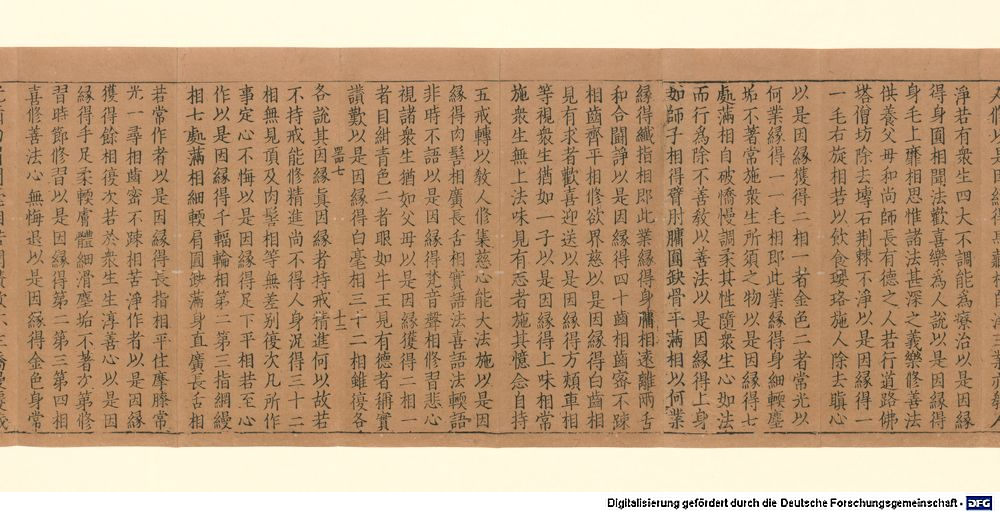 淨若有衆生四大不調能為療治以是因縁
得身圓相聞法歡喜樂為人說以是因縁得
身毛上靡相思惟諸法甚深之義樂修善法
供養父母和尚師長有德之人若行道路佛
塔僧坊除去塼石荆棘不淨以是因縁得一
一毛右旋相若以飲食瓔珞施人除去瞋心
以是因縁獲得二相一者金色二者常光以
何業縁得一一毛相即此業縁得身細輭塵
垢不著常施衆生所須之物以是因縁得七
處滿相自破憍慢調柔其性隨衆生心如法
而行為除不善教以善法以是因縁得上身
如師子相得臂肘𦟛圓缺骨平滿相以何業
縁得纖指相即此業縁得身𦟛相遠離兩舌
和合鬪諍以是因縁得四十齒相齒宻不踈
相齒齊平相修欲界慈以是因縁得白齒相
見有求者歡喜迎送以是因縁得方頰車相
等視衆生猶如一子以是因縁得上味相常
施衆生無上法味見有忘者施其憶念自持
五戒轉以教人修集慈心能大法施以是因
縁得肉髻相廣長舌相實語法喜語法輭語
非時不語以是因縁得梵音聲相修習悲心
視諸衆生猶如父母以是因縁獲得二相一
者目紺青色二者眼如牛王見有德者稱實
讃歎以是因縁得白毫相三十二相雖復各
器七 十二
各說其因縁真因縁者持戒精進何以故若
不持戒能修精進尚不得人身況得三十二
相無見頂及肉髻相等無差别後次凡所作
事定心不悔以是因縁得足下平相若至心
作以是因縁得千輻輪相第二第三指網縵
相七處滿相細輭肩圓滿身直廣長舌相
若常作者以是因縁得長指相平住摩膝常
光一尋相齒宻不踈相若淨作者以是因縁
獲得餘相復次若於衆生生淳善心以是因
縁得手足柔輭膚體細滑塵垢不著次第修
習時節修習以是因縁得第二第三第四相
喜修善法心無悔退以是因縁得金色身常
Digitalisierung gefördert durch die Deutsche Forschungsgemeinschaft - DFG